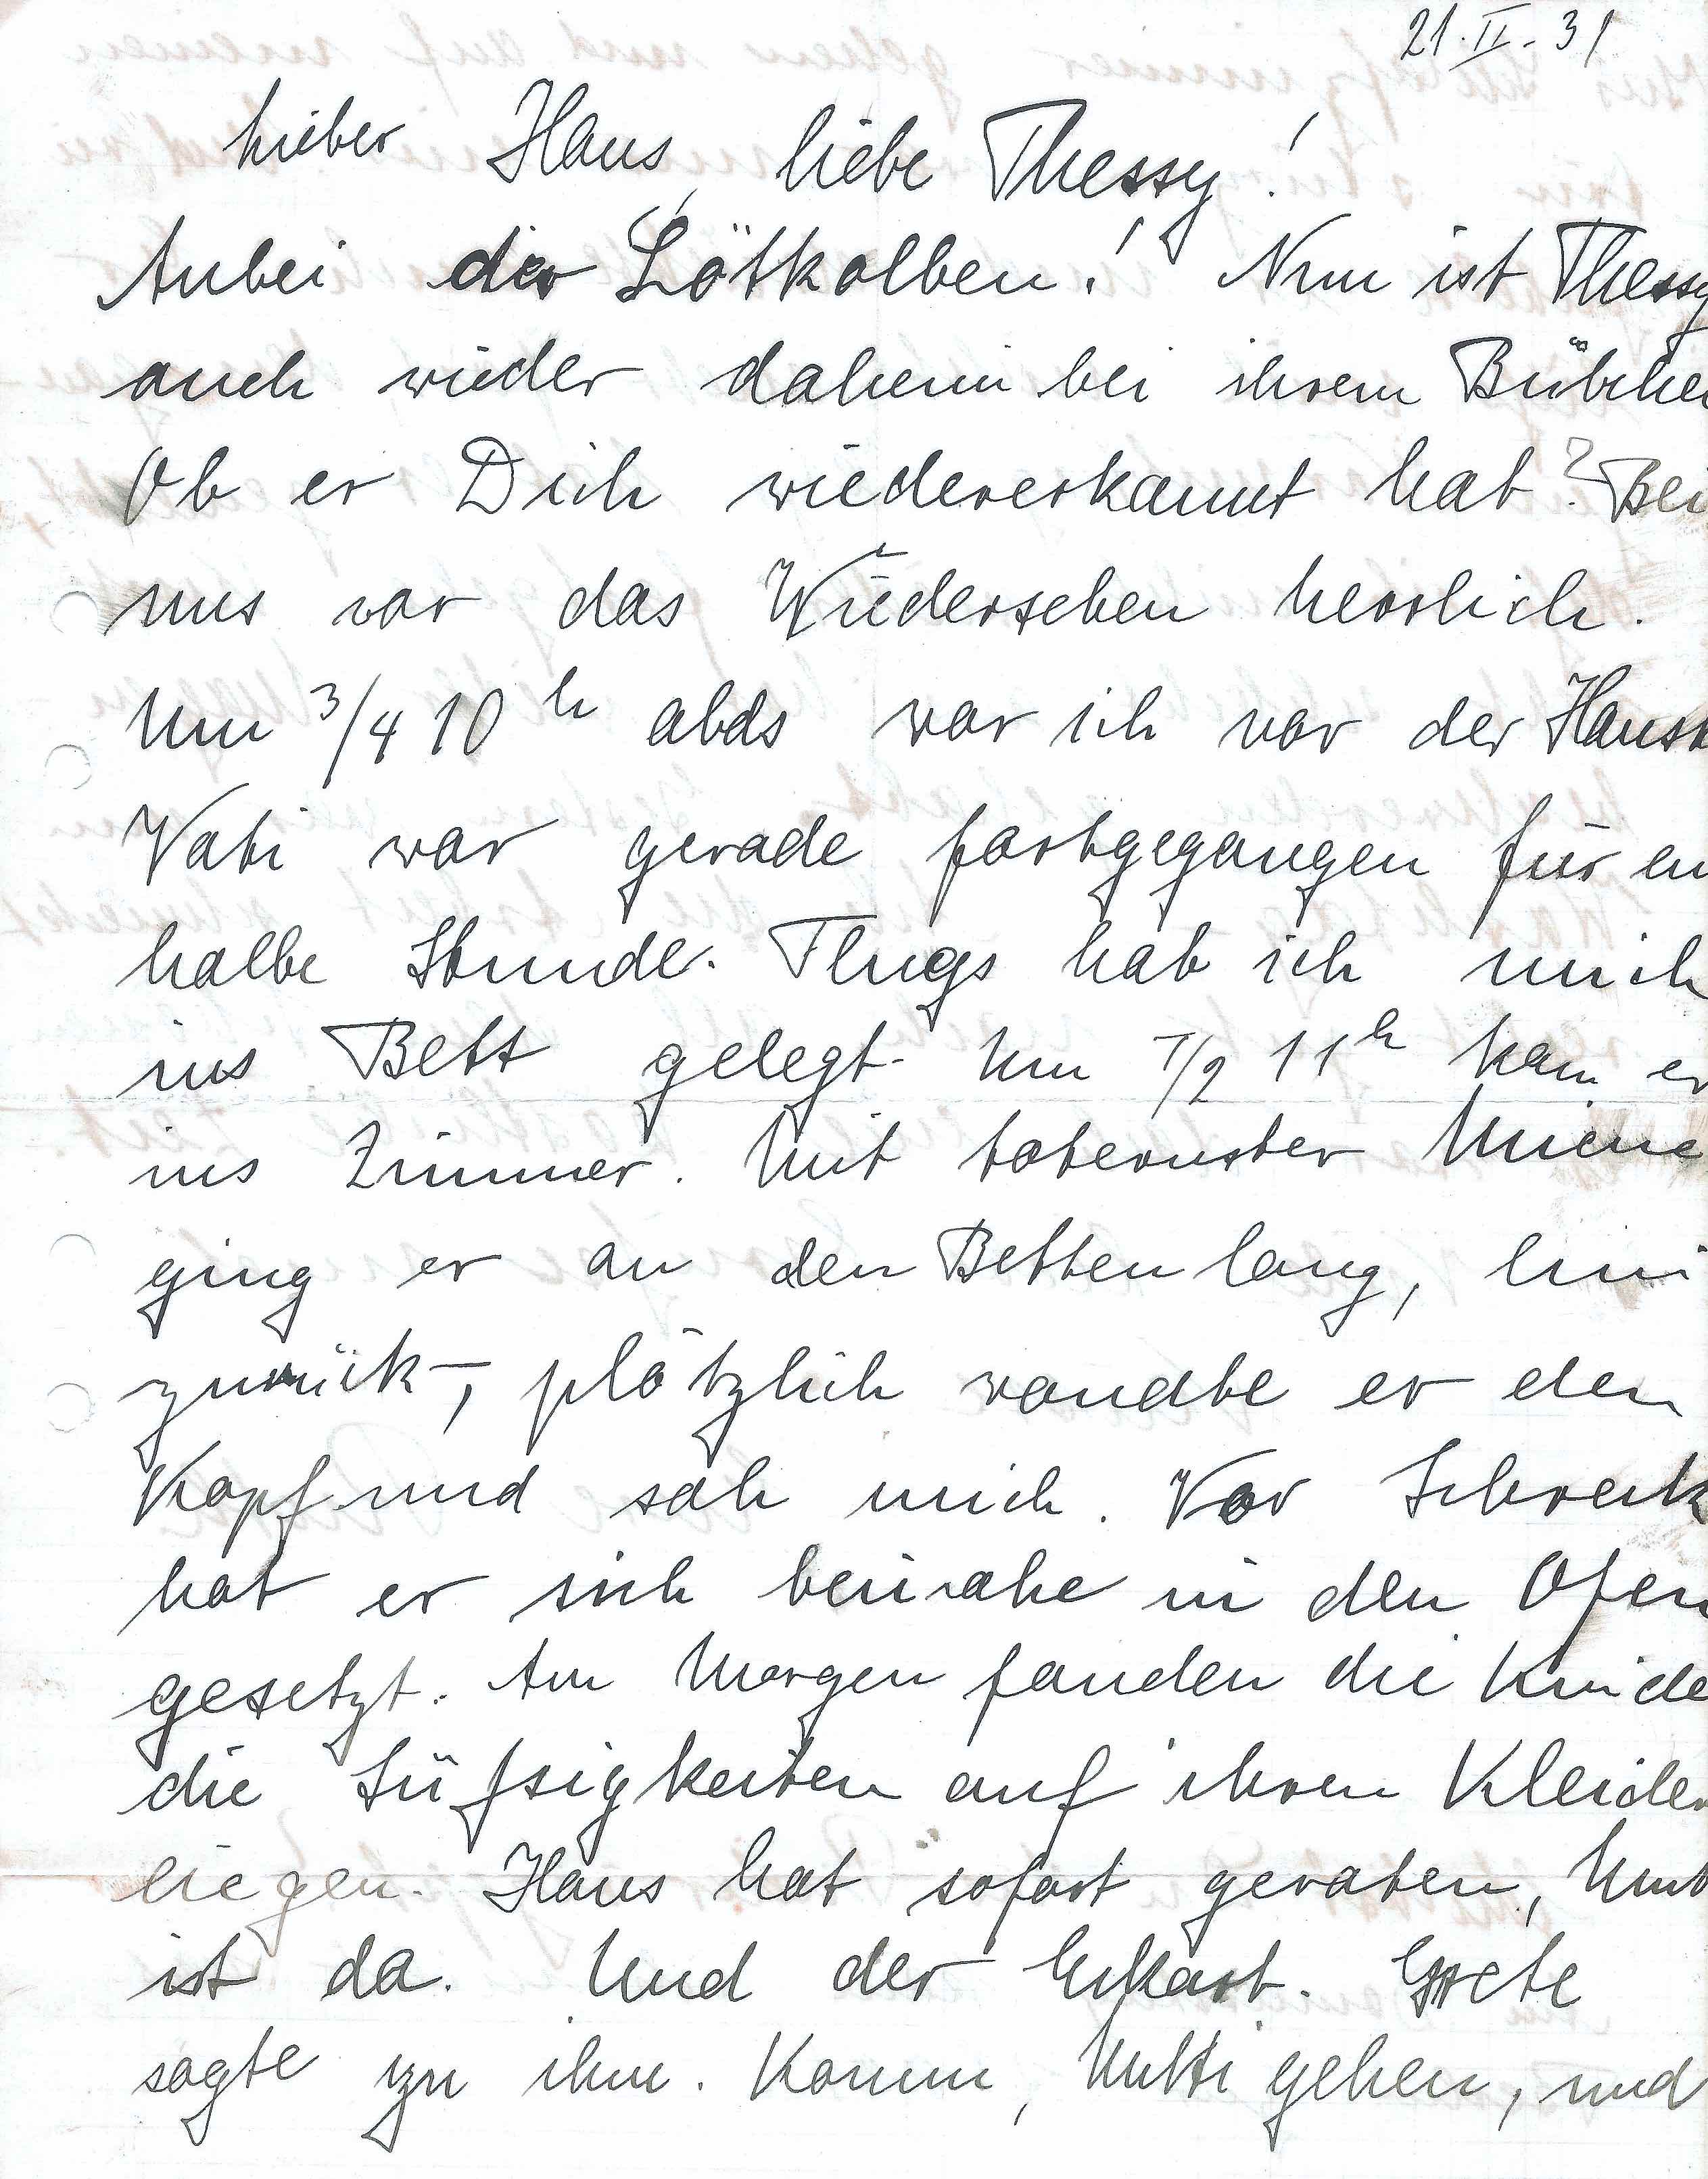 21.II.31
Lieber Hans, liebe Thessy!
Anbei der Lötkolben! Nun ist Thessy
auch wieder daheim bei ihrem Bübche
Ob er Dich wiedererkannt hat? Bei
uns war das Wiedersehen herrlich.
Um 3/4 10 h abds war ich vor der Haust
Vati war gerade fortgegangen für ei
halbe Stunde. Flugs hab ich mich
ins Bett gelegt. Um 1/2 11 h kam er
ins Zimmer. Mit toternster Miene
ging er an den Betten lang, hin
zurück –, plötzlich wandte er den
Kopf und sah mich. Vor Schreck
hat er sich beinahe in den Ofen
gesetzt. Am Morgen fanden die Kinde
die Süßigkeiten auf ihren Kleider
liegen. Hans hat sofort geraten, Mut
ist da. Und der Eckart. Grete
sagte zu ihm. Komm, Mutti gehen, und